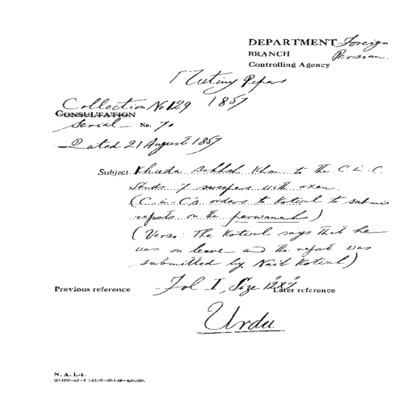 DEPARTMENT Foreign
BRANCH Persian
Controlling Agency
Mutiny Papers
Collection No 129 1857
CONSULTATION
Serial No. 70
Dated 21 August 1857
Subject Khuda Bakhsh Khan to the C in C.
Sends 7 sweepers with oxen
(C. in C's orders to Kotwal to submit
reports on the parwanahs)
(Verso: The Kotwal says that he
was on leave and the report was
submitted by Naib Kotwal.)
Fol 1, Size 12"x7"
Previous reference Later reference
Urdu
N. A. I.-1.